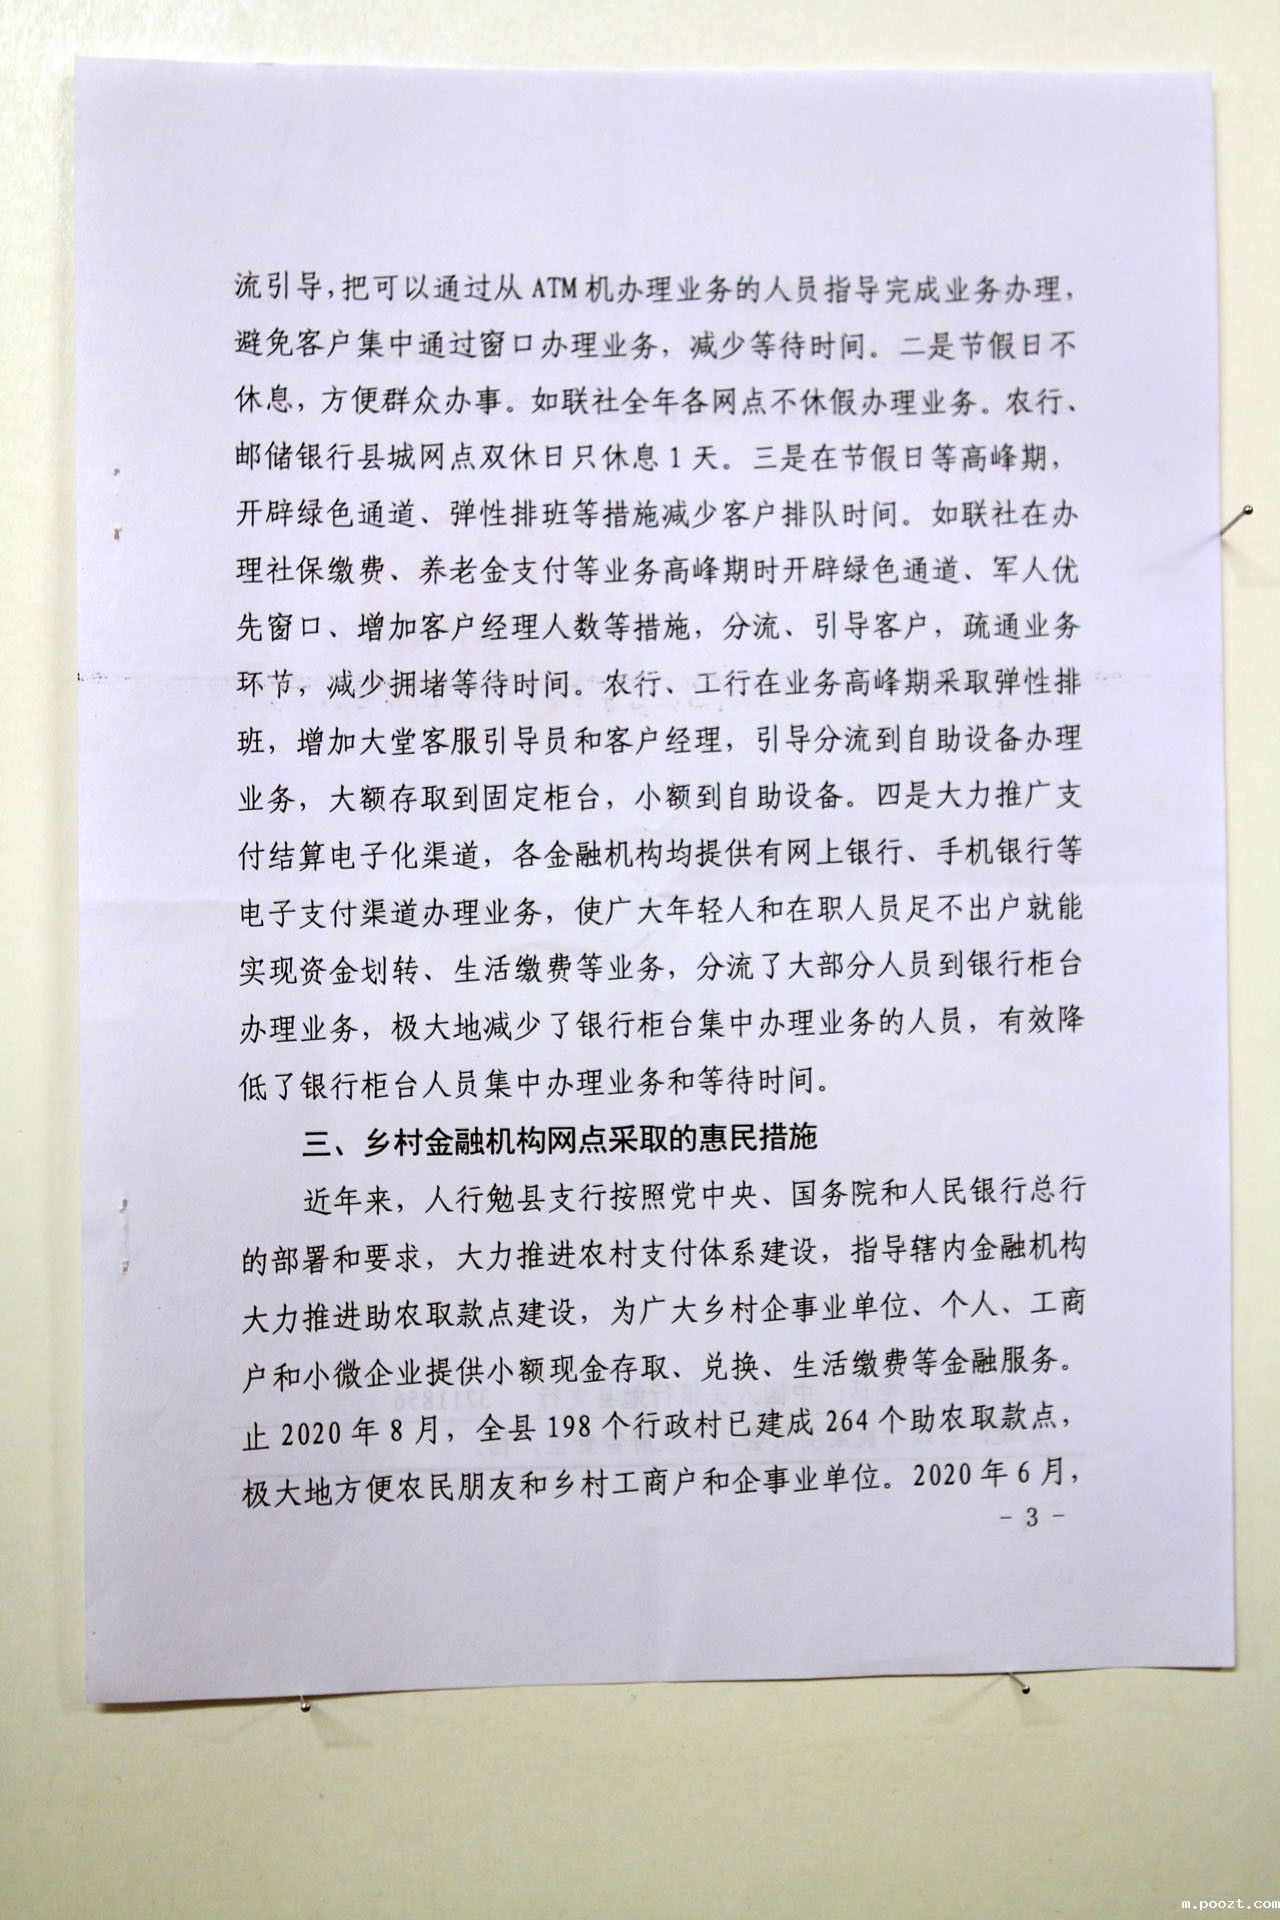 流引导,把可以通过从 ATM 机办理业务的人员指导完成业务办理，
避免客户集中通过窗口办理业务，减少等待时间。二是节假日不
休息，方便群众办事。如联社全年各网点不休假办理业务。农行、
邮储银行县城网点双休日只休息 1 天。三是在节假日等高峰期，
开辟绿色通道、弹性排班等措施减少客户排队时间。如联社在办
理社保缴费、养老金支付等业务高峰期时开辟绿色通道、军人优
先窗口、增加客户经理人数等措施，分流、引导客户，疏通业务
环节，减少拥堵等待时间。农行、工行在业务高峰期采取弹性排
班，增加大堂客服引导员和客户经理，引导分流到自助设备办理
业务，大额存取到固定柜台，小额到自助设备。四是大力推广支
付结算电子化渠道，各金融机构均提供有网上银行、手机银行等
电子支付渠道办理业务，使广大年轻人和在职人员足不出户就能
实现资金划转、生活缴费等业务，分流了大部分人员到银行柜台
办理业务，极大地减少了银行柜台集中办理业务的人员，有效降
低了银行柜台人员集中办理业务和等待时间。
三、乡村金融机构网点采取的惠民措施
近年来，人行勉县支行按照党中央、国务院和人民银行总行
的部署和要求，大力推进农村支付体系建设，指导辖内金融机构
大力推进助农取款点建设，为广大乡村企事业单位、个人、工商
户和小微企业提供小额现金存取、兑换、生活缴费等金融服务。
止 2020 年 8 月，全县 198 个行政村已建成 264 个助农取款点，
极大地方便农民朋友和乡村工商户和企事业单位。2020 年 6 月，
- 3 -
m.poozt.com